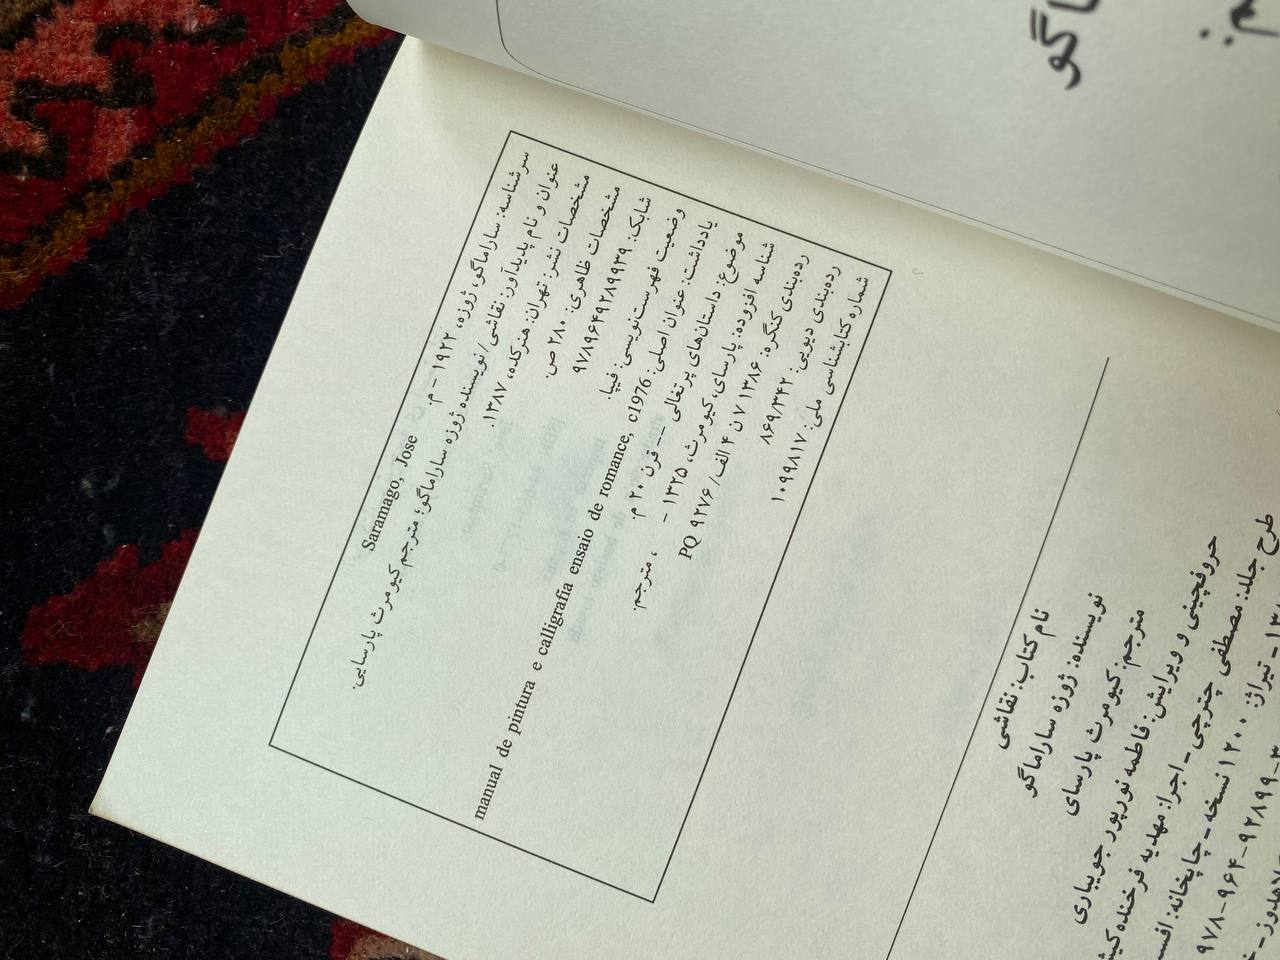 اگو
سرشناسه: ساراماگو، ژوزه، ۱۹۲۲ - م.
Saramago, Jose
عنوان و نام پدیدآور: نقاشی/نویسنده ژوزه ساراماگو؛ مترجم کیومرث پارسایی.
مشخصات نشر: تهران: هنرکده، ۱۳۸۷.
مشخصات ظاهری: ۲۸۰ ص.
شابک: ۹۷۸۹۶۴۹۲۸۹۹۳۹
وضعیت فهرست‌نویسی: فیپا.
یادداشت: عنوان اصلی: manual de pintura e calligrafia ensaio de romance, c1976
موضوع: داستان‌های پرتغالی -- قرن ۲۰ م.
شناسه افزوده: پارسای، کیومرث، ۱۳۲۵ - ، مترجم.
رده‌بندی کنگره: ۱۳۸۶ ۷ن ۴ الف/ PQ ۹۲۷۶
رده‌بندی دیویی: ۸۶۹/۳۴۲
شماره کتابشناسی ملی: ۱۰۹۹۸۱۷
نام کتاب: نقاشی
نویسنده: ژوزه ساراماگو
مترجم: کیومرث پارسای
حروفچینی و ویرایش: فاطمه نورپور جویباری
طرح جلد: مصطفی چترچی - اجرا: مهدیه فرخنده
تیراژ: ۱۲۰۰ نسخه - چاپخانه:
۹۷۸-۹۶۴-۹۲۸۹۹-۳